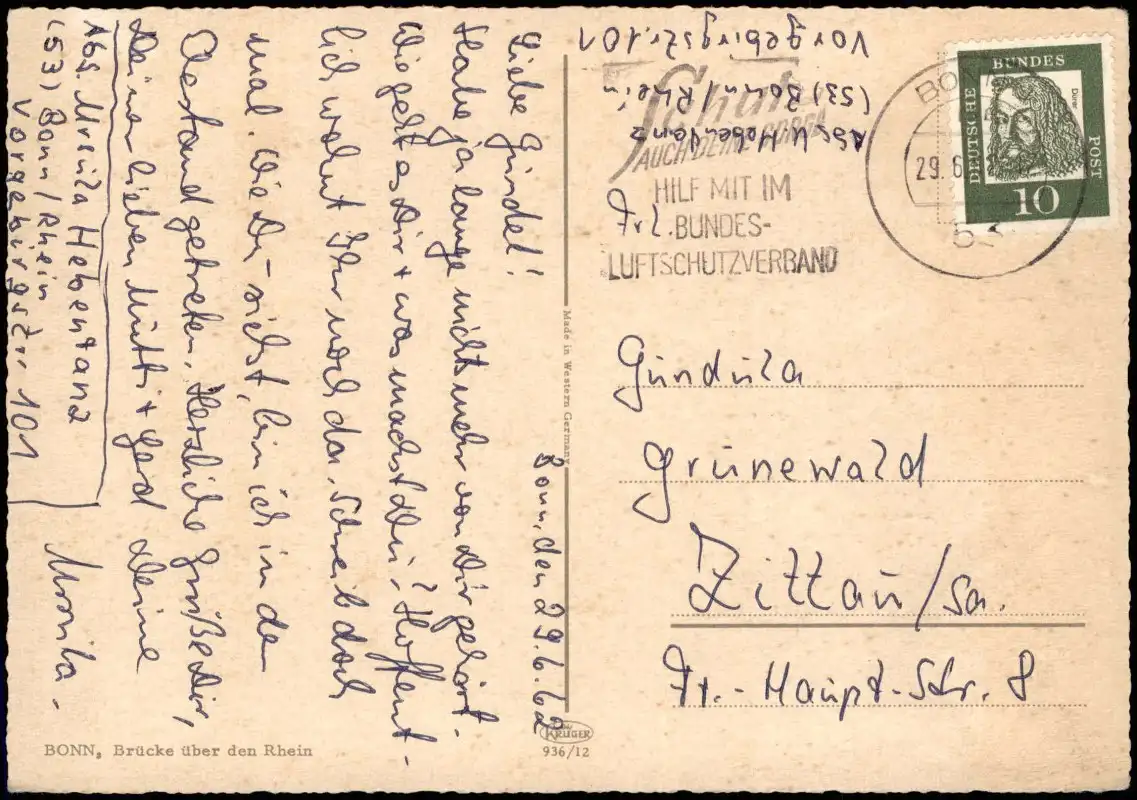 Bonn, den 29.6.62
Liebe Gundel!
Habe ja lange nichts mehr von Dir gehört.
Wie geht es Dir + was machst Du? Hoffent-
lich wohnt Ihr noch da. Schreib doch
mal. Wie Du siehst, bin ich in den
getreten. Herzliche Grüße Dir,
Deiner lieben Mutti + Gerd Deine
Ursula.
Abs. Ursula Hebentanz
(53) Bonn/Rhein
Vorgebirgstr. 101
BONN, Brücke über den Rhein
Made in Western Germany
KRÜGER
936/12
Abs. U. Hebentanz
(53) Bonn/Rhein
Vorgebirgstr. 101
AUCH DEINE
HILF MIT IM
BUNDES-
LUFTSCHUTZVERBAND
BONN
29.6.
53
DEUTSCHE BUNDESPOST
Dürer
10
Frl.
Gundula
Grünewald
Zittau/Sa.
Fr.-Haupt-Str. 8